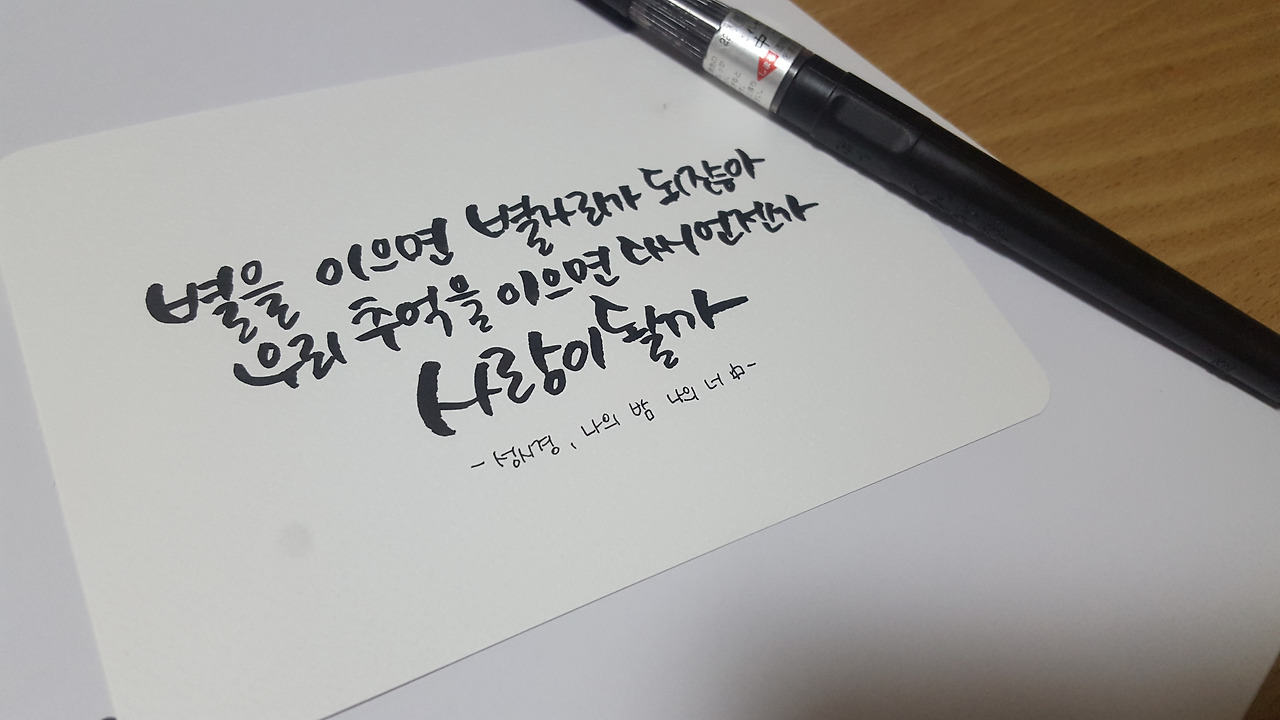 별을 이으면 별자리가 되잖아
우리 추억을 이으면 다시 언젠가
사랑이 될까
- 성시경, 나의 밤 나의 너 中 -